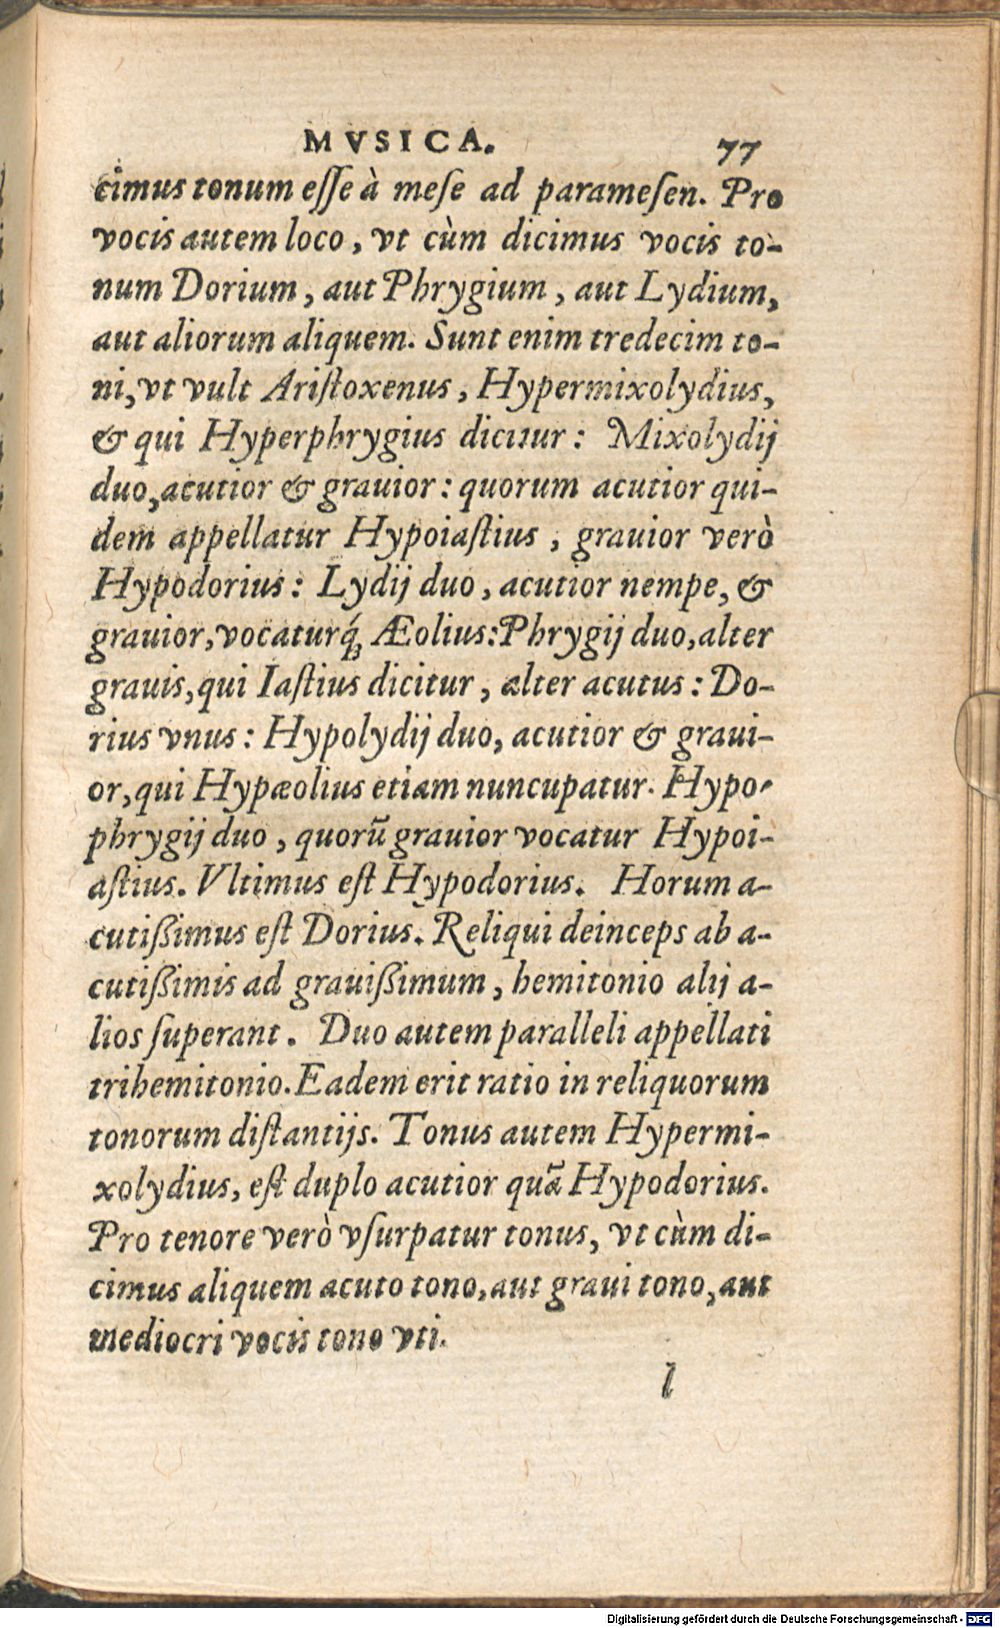 MVSICA. 77
cimus tonum eſſe à meſe ad parameſen. Pro
vocis autem loco, vt cùm dicimus vocis to-
num Dorium, aut Phrygium, aut Lydium,
aut aliorum aliquem. Sunt enim tredecim to-
ni, vt vult Ariſtoxenus, Hypermixolydius,
& qui Hyperphrygius dicitur: Mixolydij
duo, acutior & grauior: quorum acutior qui-
dem appellatur Hypoiaſtius, grauior verò
Hypodorius: Lydij duo, acutior nempe, &
grauior, vocaturq́; Æolius: Phrygij duo, alter
grauis, qui Iaſtius dicitur, alter acutus: Do-
rius vnus: Hypolydij duo, acutior & graui-
or, qui Hypæolius etiam nuncupatur. Hypo-
phrygij duo, quorũ grauior vocatur Hypoi-
aſtius. Vltimus eſt Hypodorius. Horum a-
cutißimus eſt Dorius. Reliqui deinceps ab a-
cutißimis ad grauißimum, hemitonio alij a-
lios ſuperant. Duo autem paralleli appellati
trihemitonio. Eadem erit ratio in reliquorum
tonorum diſtantijs. Tonus autem Hypermi-
xolydius, eſt duplo acutior quã Hypodorius.
Pro tenore verò vſurpatur tonus, vt cùm di-
cimus aliquem acuto tono, aut graui tono, aut
mediocri vocis tono vti.
l
Digitalisierung gefördert durch die Deutsche Forschungsgemeinschaft - DFG